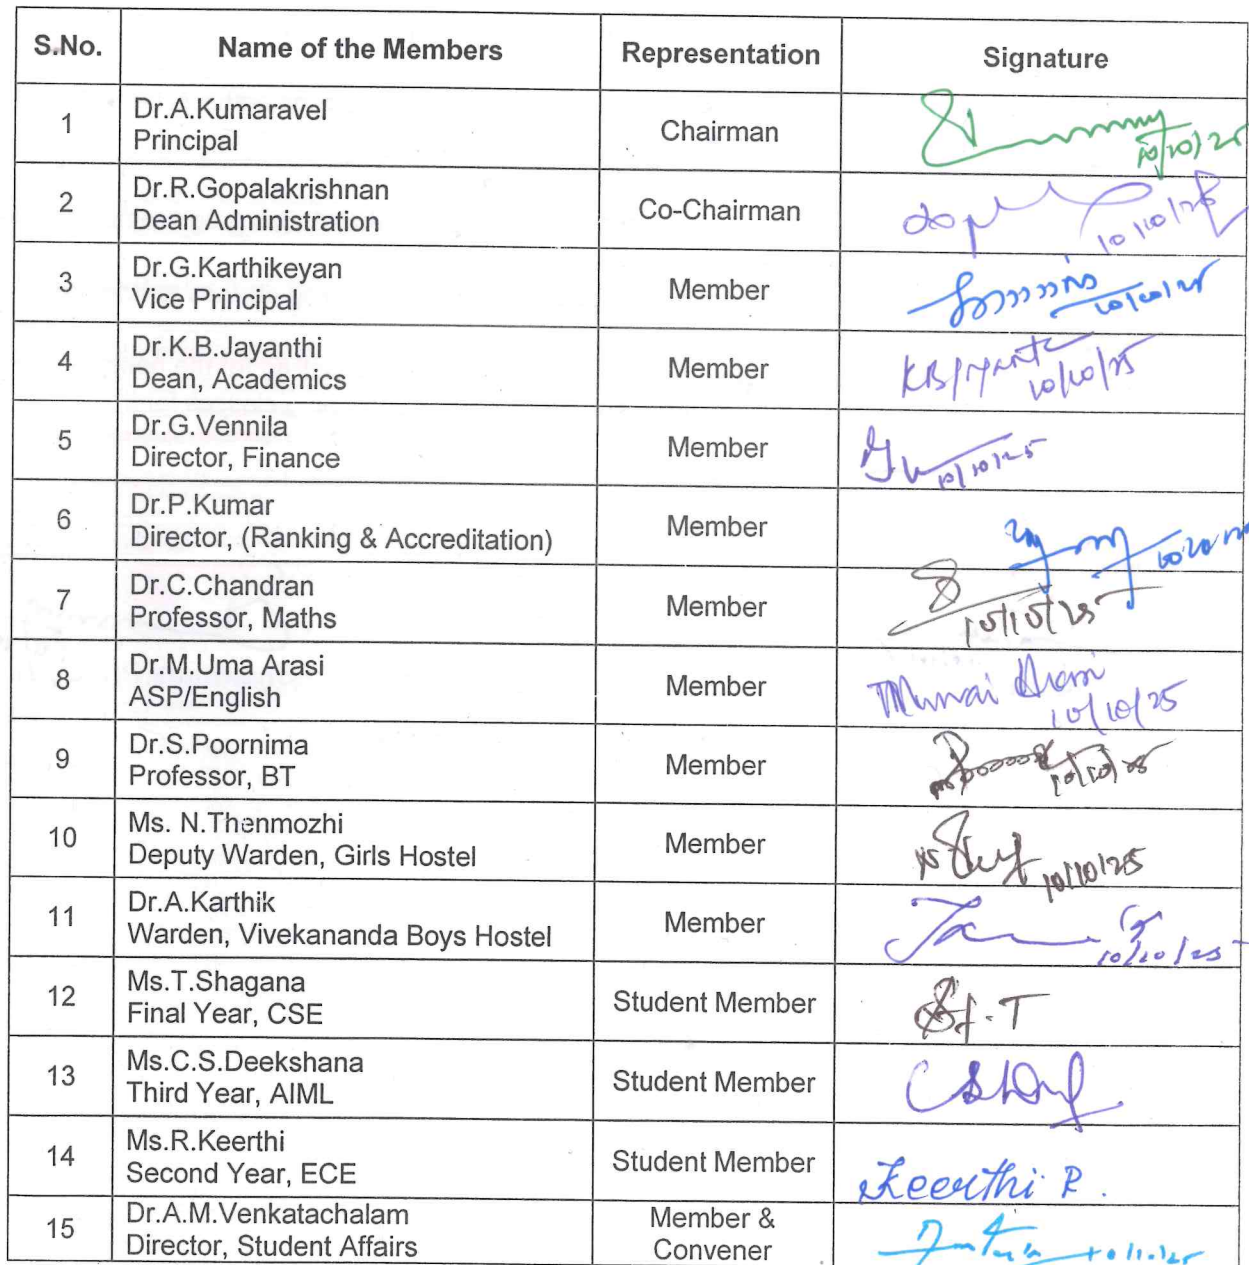 S.No. Name of the Members Representation Signature
1 Dr.A.Kumaravel
Principal Chairman 10/10/25
2 Dr.R.Gopalakrishnan
Dean Administration Co-Chairman 10/10/25
3 Dr.G.Karthikeyan
Vice Principal Member 10/10/25
4 Dr.K.B.Jayanthi
Dean, Academics Member 10/10/25
5 Dr.G.Vennila
Director, Finance Member 10/10/25
6 Dr.P.Kumar
Director, (Ranking & Accreditation) Member
7 Dr.C.Chandran
Professor, Maths Member 10/10/25
8 Dr.M.Uma Arasi
ASP/English Member 10/10/25
9 Dr.S.Poornima
Professor, BT Member 10/10/25
10 Ms. N.Thenmozhi
Deputy Warden, Girls Hostel Member 10/10/25
11 Dr.A.Karthik
Warden, Vivekananda Boys Hostel Member 10/10/25
12 Ms.T.Shagana
Final Year, CSE Student Member
13 Ms.C.S.Deekshana
Third Year, AIML Student Member
14 Ms.R.Keerthi
Second Year, ECE Student Member Keerthi R.
15 Dr.A.M.Venkatachalam
Director, Student Affairs Member &
Convener